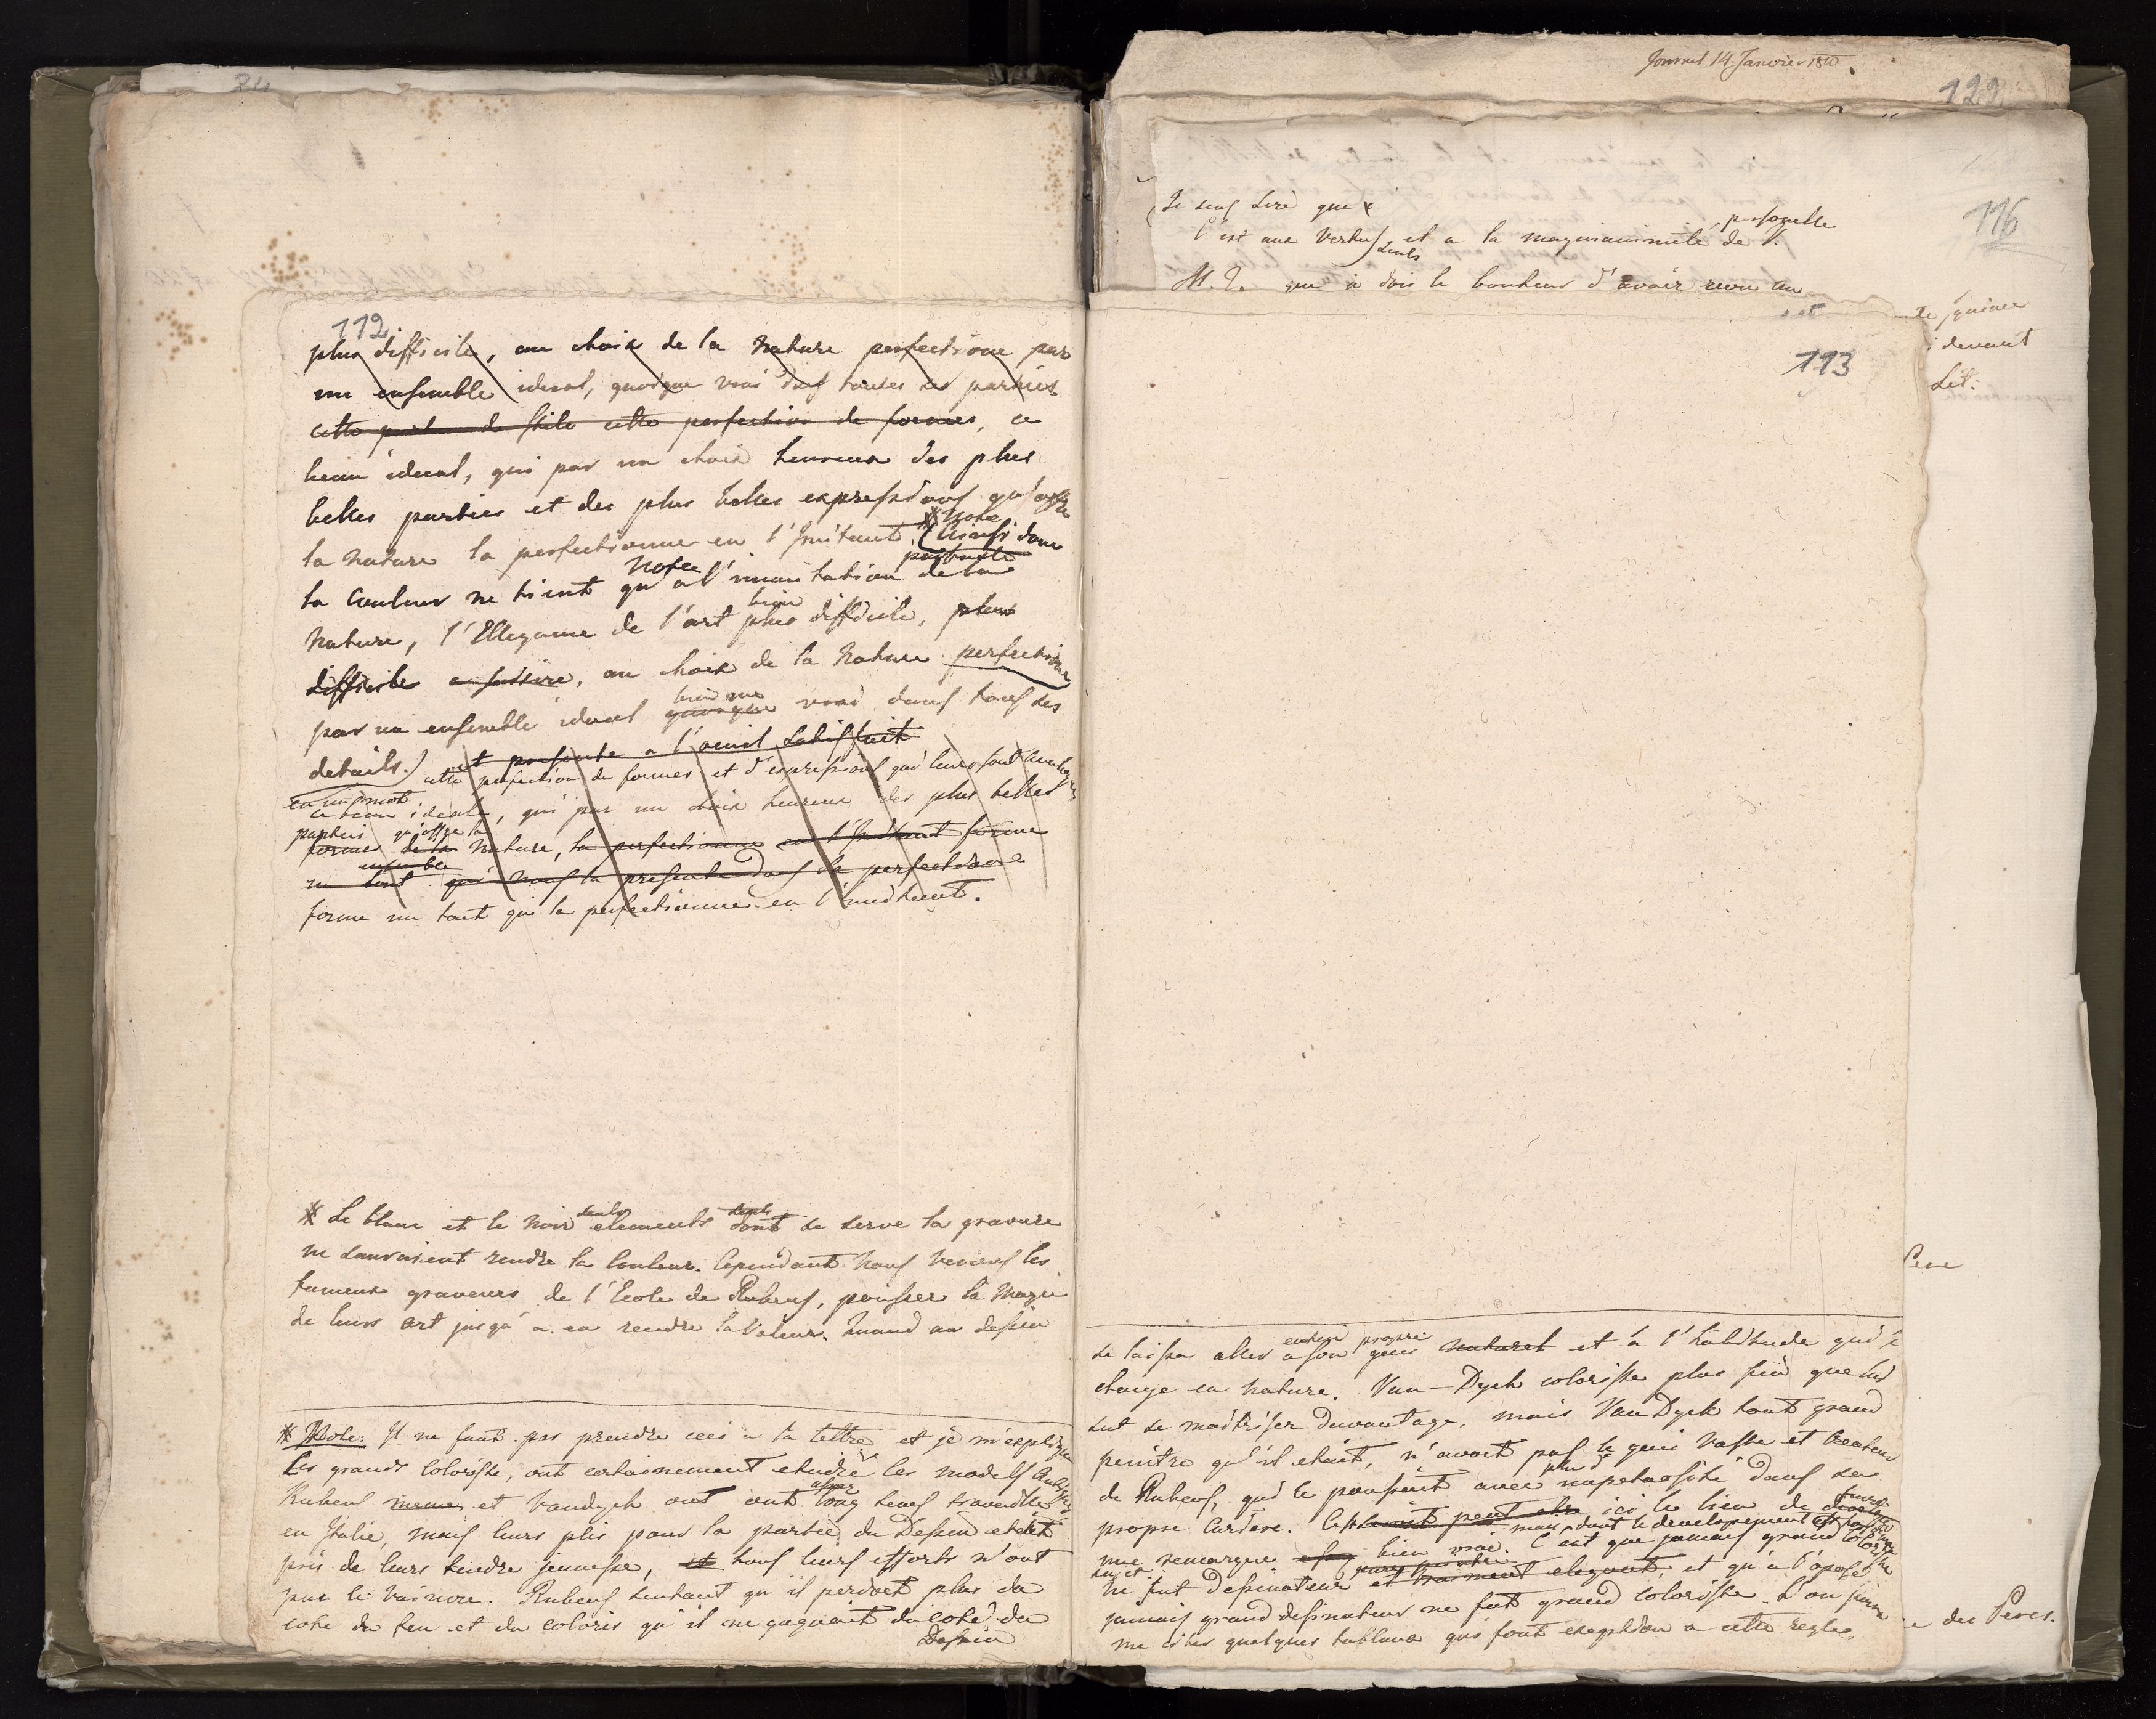 112
plus difficile, au choix de la nature perfectione par
un ensemble ideal, quoique vrai dans toutes ses parties
cette de stile cette perfection de formes, ce
beau ideal, qui par un choix heureux des plus
belles parties et des plus belles expressions qu'offre
la nature la perfectionne en l'imitant. * Note (Ainsi donc
la couleur ne tient qu'a l'imitation de la
Note
nature, l'Ellegance de l'art plus difficile, plus
bien
difficile a suivre, au choix de la nature perfectione
par un ensemble ideal quoique vrai dans tous ses
details.) et presente a l'oeuil satisfait
cette perfection de formes et d'expressions qui leurs sont
en un mot
ce beau ideale, qui par un choix heureux des plus belles
parties qu'offre la
formes de la nature, la perfectionne en l'imitant forme
ensemble
un tout qui nous la presente dans sa perfection
forme un tout qui la perfectionne en l'imitant.
* Le blanc et le noir seuls elements dont se serve la gravure
seuls
ne sauroient rendre la couleur. Cependant nous voyons les
fameux graveurs de l'Ecole de Rubens, pousser la Magie
de leurs art jusqu'a en rendre la valeur. Quand au dessin
* Note: Il ne faut pas prendre ceci a la lettre et je m'explique
Les grands coloriste, ont certainement etudié les models Antiques
Rubens meme et Vandyck ont ont long tems travaillé
asser
en Italie, mais leurs plis pour la partie du Dessin etoit
pris de leurs tendre jeunesse, et tous leurs efforts n'ont
pue le vaincre. Rubens sentant qu'il perdoit plus du
coté du feu et du coloris qu'il ne gagnait du coté du
Dessin
Journal 14. Janvier 1810.
122
116
Je sens Sire que
C'est aux Vertus et a la magnanimité de V.
seuls
personelle
M. I. que je dois le bonheur d'avoir revu un
devant
Sit:
113
Pere
e des Peres.
se laissa aller a son genie naturel et a l'habitude qui se
propre
change en nature. Van-Dyck coloriste plus fin que lui
sut se maitriser davantage, mais Van Dyck tout grand
peintre qu'il etait, n'avoit pas le genie Vaste et Createur
de Rubens, qui le poussoit avec impetuosité dans sa
plus
propre Cariere. C'est peut etre ici le lieu de faire
mais dont le developement est
une remarque bien vraie. C'est que jamais grand Coloriste
ne fut Dessinateur et vraiment elegant, et qu'a l'oposé
jamais grand desinateur ne fut grand coloriste. L'on poura
me citer quelques tableaux qui font exception a cette regle,